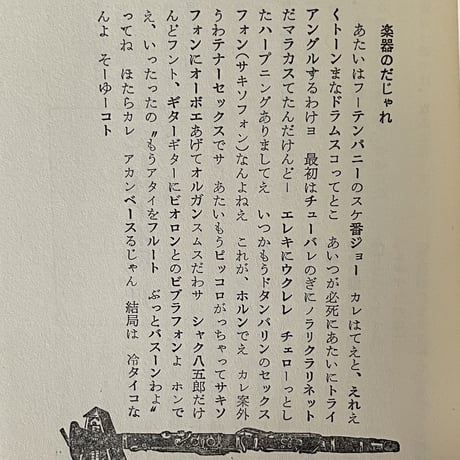 楽器のだじゃれ
あたいはフーテンバニーのスケ番ジョー　カレはてえと、えれえ
くトーンまなドラムスコってとこ　あいつが必死にあたいにトライ
アングルするわけョ　最初はチューバレのぎにノラリクラリネット
だマラカスてたんだけんどー　エレキにウクレレ　チェローっとし
たハープニングありましてえ　いつかもうドタンバリンのセックス
フォン(サキソフォン)なんよねえ　これが、ホルンでえ　カレ案外
うわテナーセックスでサ　あたいもうピッコロがっちゃってサキソ
フォンにオーボエあげてオルガンスムスだわサ　シャク八五郎だけ
んどフント、ギターギターにビオロンとのビブラフォンよ　ホンで
え、いったったの〝もうアタイをフルート　ぶっとバスーンわょ〟
ってね　ほたらカレ　アカンベースるじゃん　結局は　冷タイコな
んよ　そーゆーコト